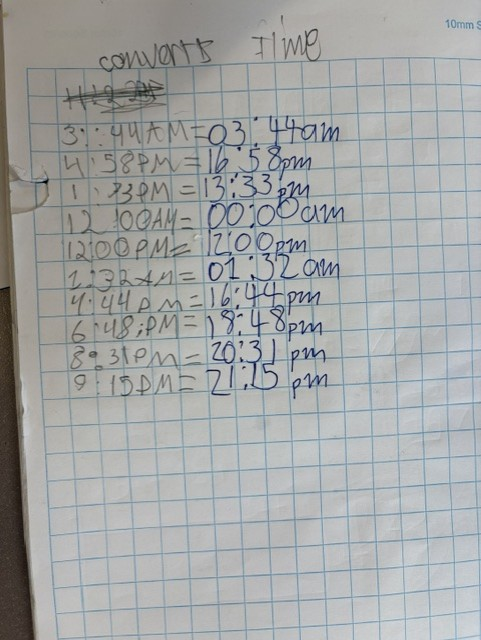 10mm S
converts Time
3::44AM=03:44am
4:58PM=16:58pm
1:33PM=13:33pm
12 00AM=00:00am
12:00PM=12:00pm
1:32AM=01:32am
4:44pm=16:44 pm
6:48;PM=18:48pm
8:31PM=20:31 pm
9:15PM=21:15 pm